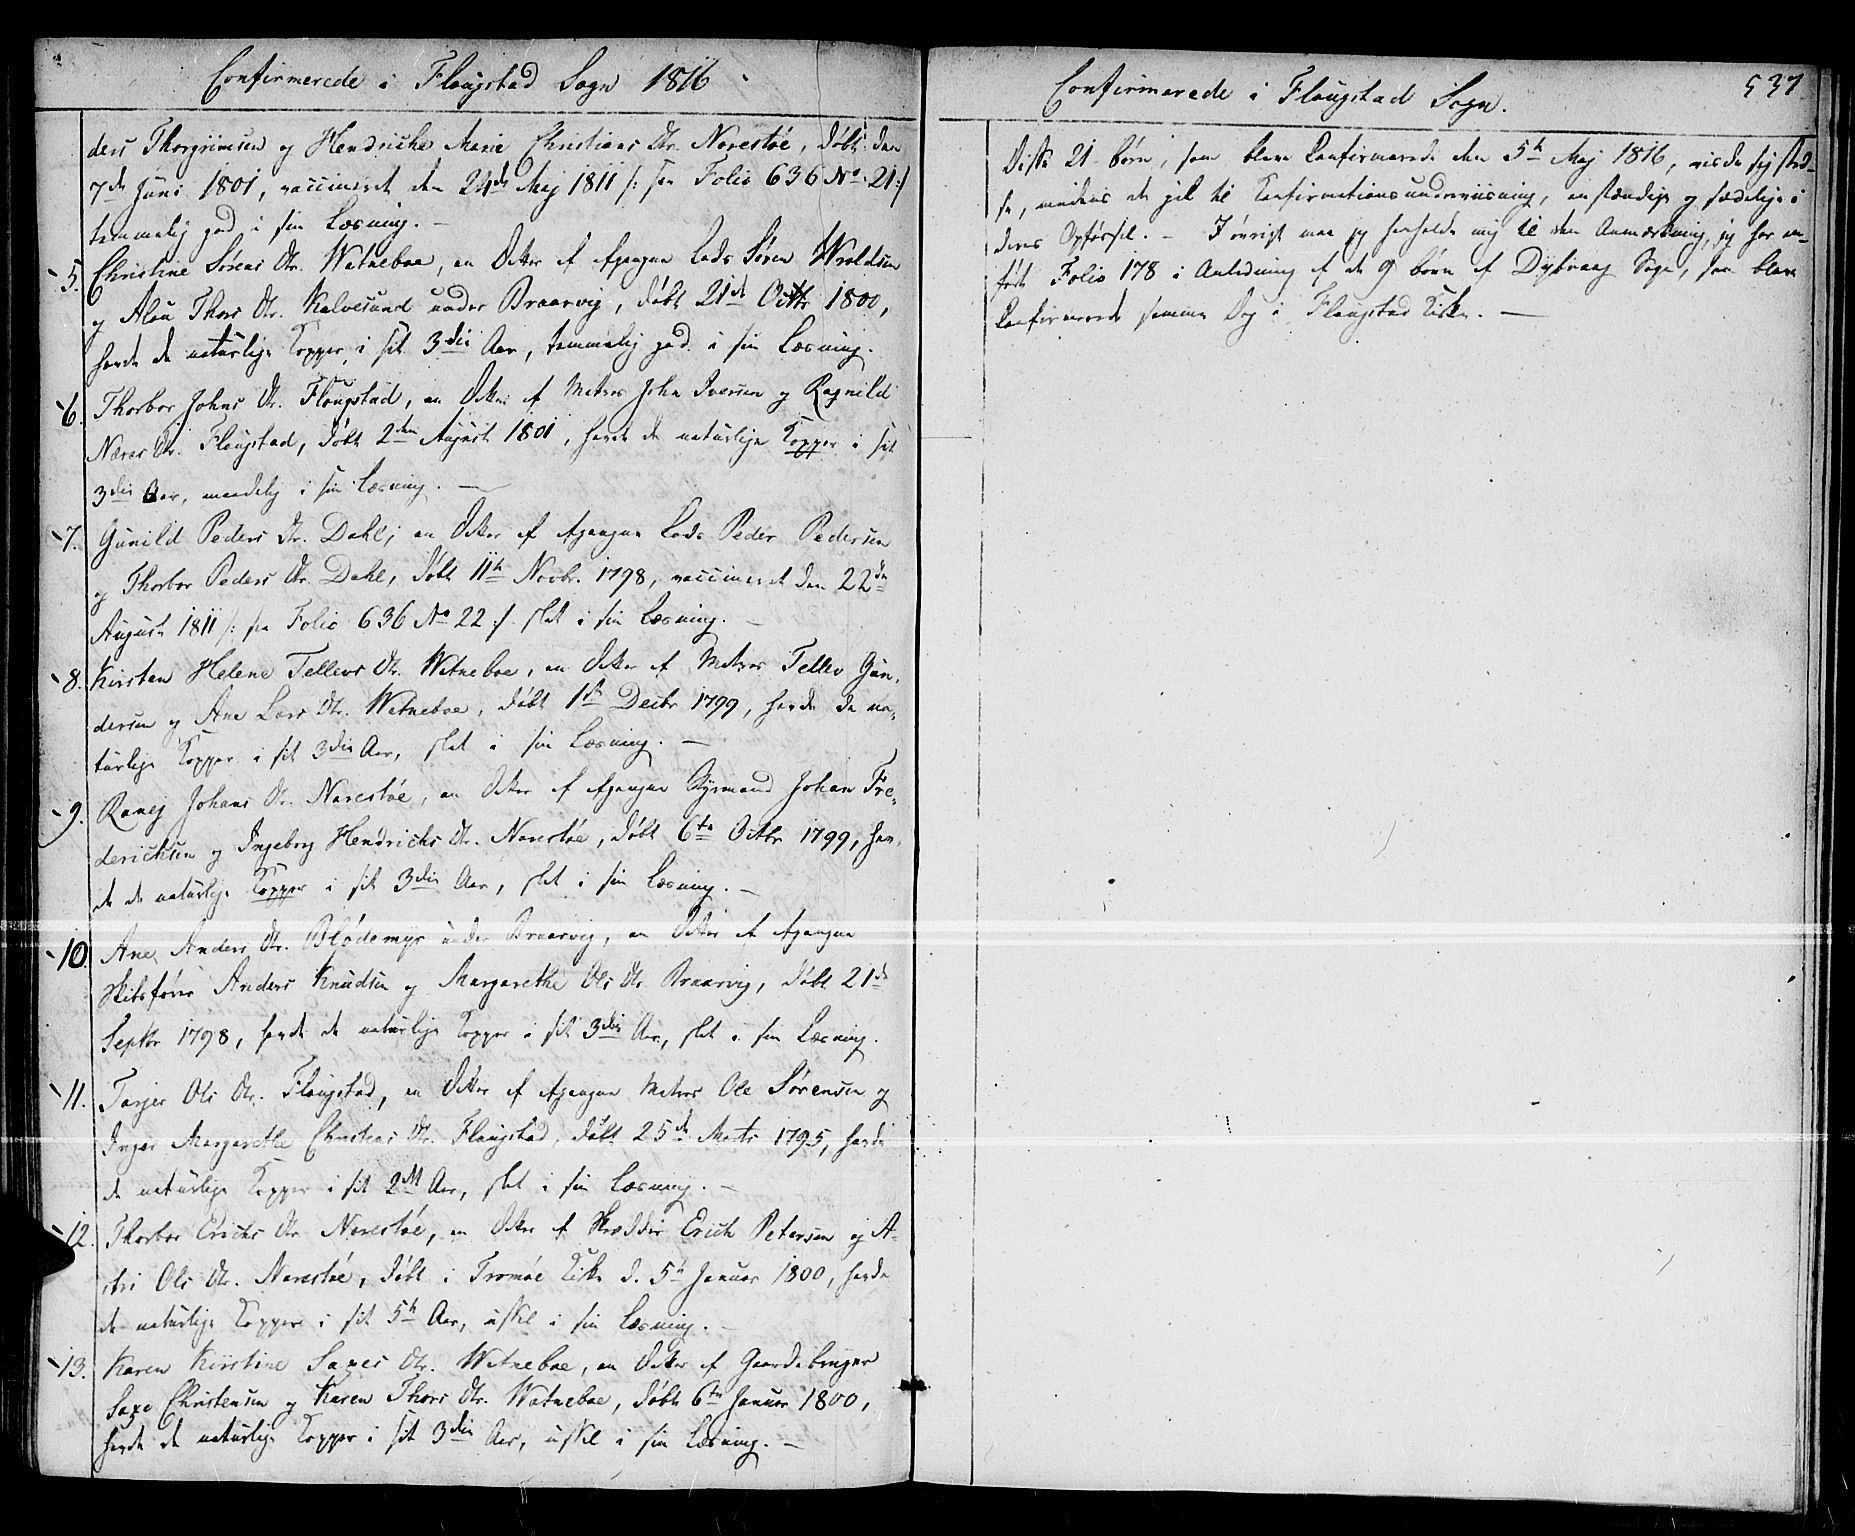 Confirmerede i Flougstad Sogn 1816
ders Thorgrimsen og Hendriche Marie Christians Dr. Narestøe, døbt den
7de Juni 1801, vaccineret den 24de Maj 1811 /: see Folio 636 No. 21 :/
temmelig god i sin Læsning. —
5. Christine Sørens Dr. Watneboe, en Datter af afgangne Lods Søren Wroldsen
og Alou Thors Dr. Kalvesund under Braarvig, døbt 21de Octbr 1800,
havde de naturlige Kopper i sit 3die Aar, temmelig god i sin Læsning.
6. Thorbor Johns Dr. Flougstad, en Datter af Matros John Iversen og Ragnild
Næres Dr. Flougstad, døbt 2den August 1801, havde de naturlige Kopper i sit
3die Aar, maadelig i sin Læsning. —
7. Gunild Peders Dr. Dahl, en Datter af afgangne Lods Peder Pedersen
og Thorbor Peders Dr. Dahl, døbt 11te Novbr. 1798, vaccineret den 22de
August 1811 /: see Folio 636 No 22 :/ slet i sin Læsning. —
8. Kirsten Helene Tellevs Dr. Watneboe, en Datter af Matros Tellev Gun-
dersen og Ane Lars Dr. Watneboe, døbt 1ste Decbr 1799, havde de na-
turlige Kopper i sit 3die Aar, slet i sin Læsning. —
9. Raney Johans Dr. Narestøe, en Datter af afgangne Styrmand Johan Fre-
derichsen og Ingeborg Hendrichs Dr. Narestøe, døbt 6te Octbr 1799, hav-
de de naturlige Kopper i sit 3die Aar, slet i sin Læsning. —
10. Ane Anders Dr. Blødemyr under Braarvig, en Datter af afgangne
Skibsfører Anders Knudsen og Margarethe Ols Dr. Braarvig, døbt 21de
Septbr 1798, havde de naturlige Kopper i sit 3die Aar, slet i sin Læsning.
11. Tarjer Ols Dr. Flougstad, en Datter af afgangne Matros Ole Sørensen og
Inger Margarethe Christens Dr. Flougstad, døbt 25de Marts 1795, havde
de naturlige Kopper i sit 2det Aar, slet i sin Læsning. —
12. Thorbor Erichs Dr. Narestøe, en Datter af Skrædder Erich Petersen og A-
stri Ols Dr. Narestøe, døbt i Tromøe Kirke d. 5te Januar 1800, havde
de naturlige Kopper i sit 5te Aar, uskel i sin Læsning. —
13. Karen Kirstine Saxes Dr. Watneboe, en Datter af Gaardebruger
Saxe Christensen og Karen Thors Dr. Watneboe, døbt 6te Januar 1800,
havde de naturlige Kopper i sit 3die Aar, uskel i sin Læsning. —
Confirmerede i Flougstad Sogn.
537
Disse 21 børn, som bleve Confirmerede den 5te Maj 1816, viste sig sted-
se, medens de gik til Confirmationsunderviisning, anstændige og sædelige i
deres Opførsel. — I øvrigt maa jeg henholde mig til den Anmærkning, jeg har an-
ført Folio 178 i Anledning af de 9 børn af Dybvaag Sogn, som bleve
Confirmerede samme Dag i Flougstad Kirke. —